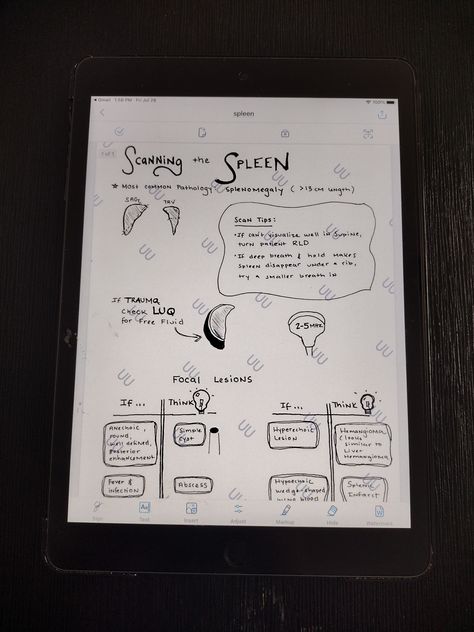 Gmail 1:58 PM Fri Jul 28
100%
spleen
1 of 1
SCANNING the SPLEEN
★ MOST COMMON PATHOLOGY splenomegaly (>13cm length)
SAGE TRV
Scan Tips:
• If can't visualize well in supine,
turn patient RLD
• If deep breath & hold makes
spleen disappear under a rib,
try a smaller breath in
If TRAUMA
CHECK LUQ
for Free Fluid
2-5MHz
Focal Lesions
If ... Think
If ... Think
Anechoic,
round,
well defined,
posterior
enhancement
Simple
Cyst
Hyperechoic
Lesion
Hemangioma
(looks
similar to
Liver
Hemangioma)
Fever &
infection
Abscess
Hypoechoic
wedge-shaped
Splenic
Infarct
Sign Text Insert Adjust Markup Hide Watermark